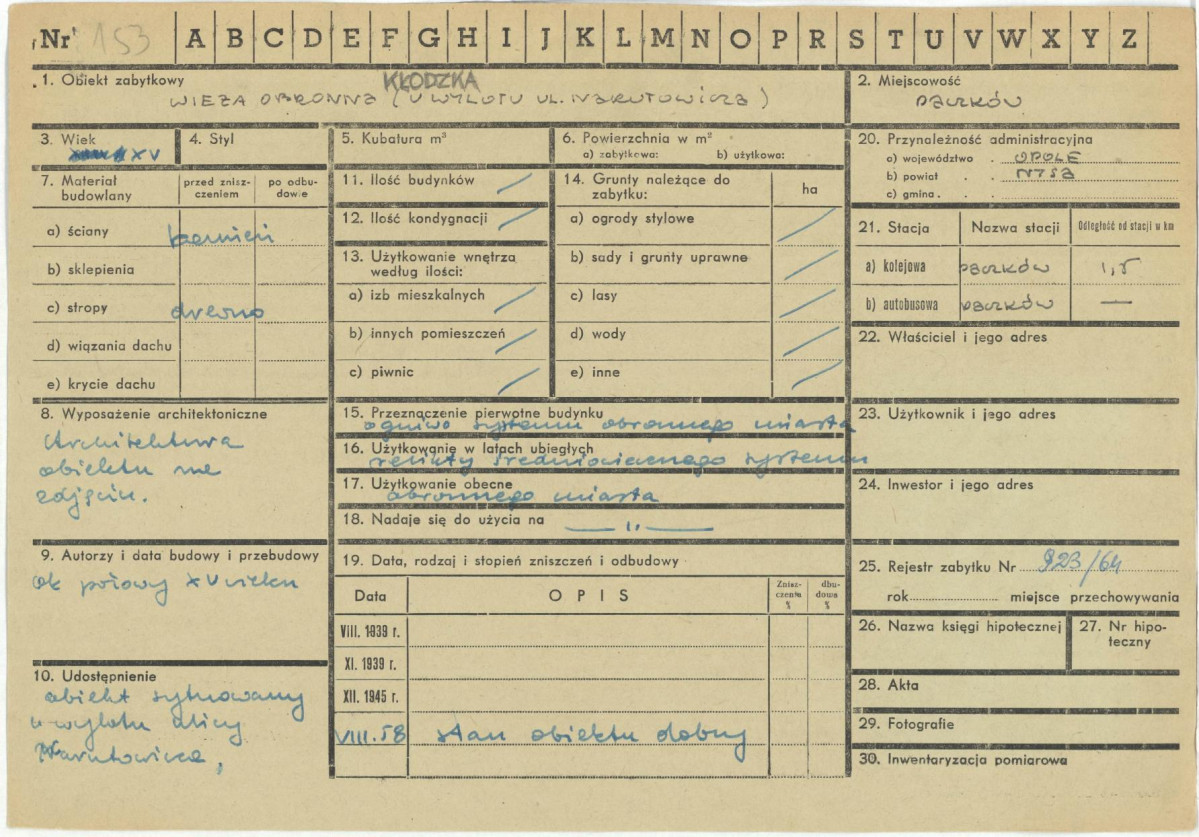 Nr 153 A B C D E F G H I J K L M N O P R S T U V W X Y Z
1. Obiekt zabytkowy
KŁODZKA
WIEŻA OBRONNA (U WYLOTU UL. NARUTOWICZA)
2. Miejscowość
PACZKÓW
3. Wiek
XV
4. Styl
5. Kubatura m³
6. Powierzchnia w m²
a) zabytkowa: b) użytkowa:
20. Przynależność administracyjna
a) województwo . OPOLE
b) powiat . . NYSA
c) gmina . .
7. Materiał budowlany
przed znisz-
czeniem
po odbu-
dowie
a) ściany kamień
b) sklepienia
c) stropy drewno
d) wiązania dachu
e) krycie dachu
11. Ilość budynków
12. Ilość kondygnacji
13. Użytkowanie wnętrza
według ilości:
a) izb mieszkalnych
b) innych pomieszczeń
c) piwnic
14. Grunty należące do
zabytku:
ha
a) ogrody stylowe
b) sady i grunty uprawne
c) lasy
d) wody
e) inne
21. Stacja Nazwa stacji Odległość od stacji w km
a) kolejowa PACZKÓW 1,5
b) autobusowa PACZKÓW —
22. Właściciel i jego adres
8. Wyposażenie architektoniczne
Architektura
obiektu na
zdjęciu.
15. Przeznaczenie pierwotne budynku
ogniwo systemu obronnego miasta
16. Użytkowanie w latach ubiegłych
relikty średniowiecznego systemu
17. Użytkowanie obecne
obronnego miasta
18. Nadaje się do użycia na — „ —
23. Użytkownik i jego adres
24. Inwestor i jego adres
9. Autorzy i data budowy i przebudowy
ok połowy XV wieku
19. Data, rodzaj i stopień zniszczeń i odbudowy
Data OPIS
Znisz-
czenia
%
dbu-
dowa
%
VIII. 1939 r.
XI. 1939 r.
XII. 1945 r.
VIII.58 stan obiektu dobry
25. Rejestr zabytku Nr 923/64
rok miejsce przechowywania
26. Nazwa księgi hipotecznej
27. Nr hipo-
teczny
10. Udostępnienie
obiekt sytuowany
u wylotu ulicy
Narutowicza,
28. Akta
29. Fotografie
30. Inwentaryzacja pomiarowa